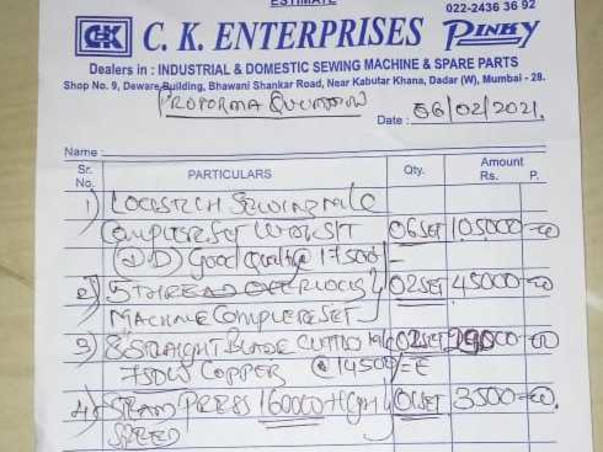 ESTIMATE
022-2436 36 92
CK C. K. ENTERPRISES PINKY
Dealers in : INDUSTRIAL & DOMESTIC SEWING MACHINE & SPARE PARTS
Shop No. 9, Deware Building, Bhawani Shankar Road, Near Kabutar Khana, Dadar (W), Mumbai - 28.
PROPORMA QUOTATION
Date : 06/02/2021.
Name :
Sr. No. PARTICULARS Qty. Amount Rs. P.
1) LOCKSTICH SEWING M/C
COMPLETE SET 06 SET 105000=00
Good Quality @ 17500/-
2) 5 THREAD OVERLOCK 02 SET 45000=00
MACHINE COMPLETE SET
3) 8" STRAIGHT BLADE CUTTING 02 SET 29000=00
COPPER @ 14500/=
4) STEAM PRESS 01 SET 3500=00.
SPEED